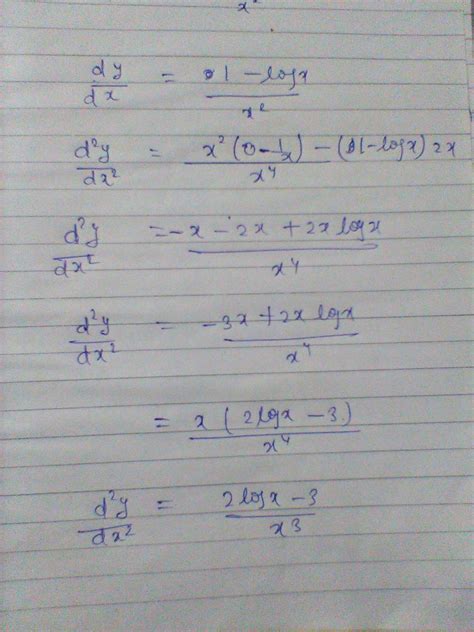 x²
dy/dx = 1 - log x / x²
d²y/dx² = x² (0 - 1/x) - (1 - log x) 2x / x⁴
d²y/dx² = -x - 2x + 2x log x / x⁴
d²y/dx² = -3x + 2x log x / x⁴
= x (2 log x - 3) / x⁴
d²y/dx² = 2 log x - 3 / x3